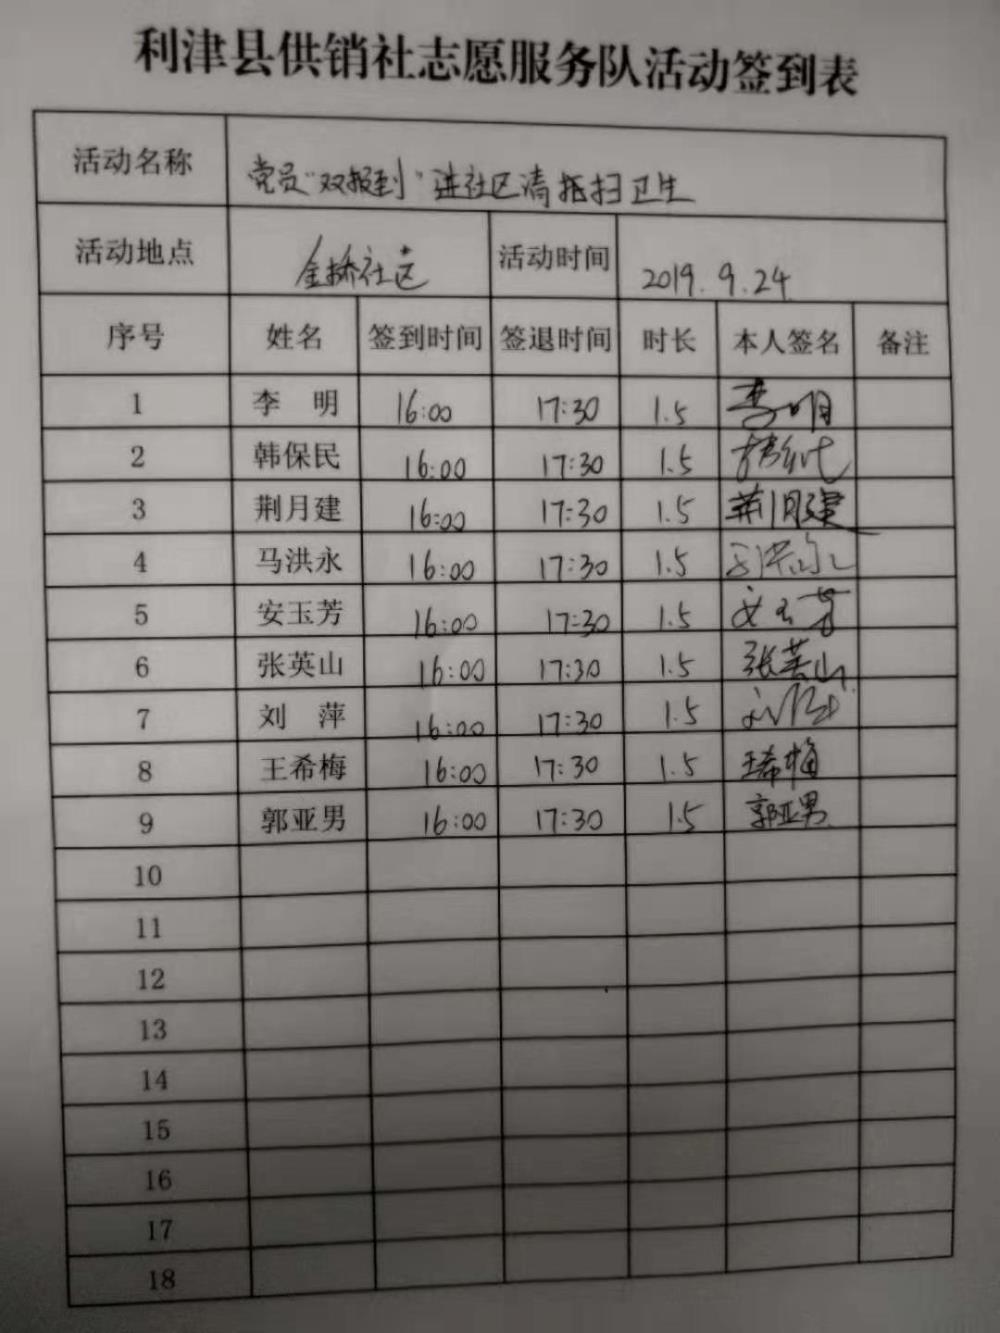 利津县供销社志愿服务队活动签到表
活动名称 党员"双报到"进社区清扫卫生
活动地点 金桥社区 活动时间 2019.9.24
序号 姓名 签到时间 签退时间 时长 本人签名 备注
1 李明 16:00 17:30 1.5 李明
2 韩保民 16:00 17:30 1.5
3 荆月建 16:00 17:30 1.5 荆月建
4 马洪永 16:00 17:30 1.5 马洪永
5 安玉芳 16:00 17:30 1.5 安玉芳
6 张英山 16:00 17:30 1.5 张英山
7 刘萍 16:00 17:30 1.5
8 王希梅 16:00 17:30 1.5 王希梅
9 郭亚男 16:00 17:30 1.5 郭亚男
10
11
12
13
14
15
16
17
18